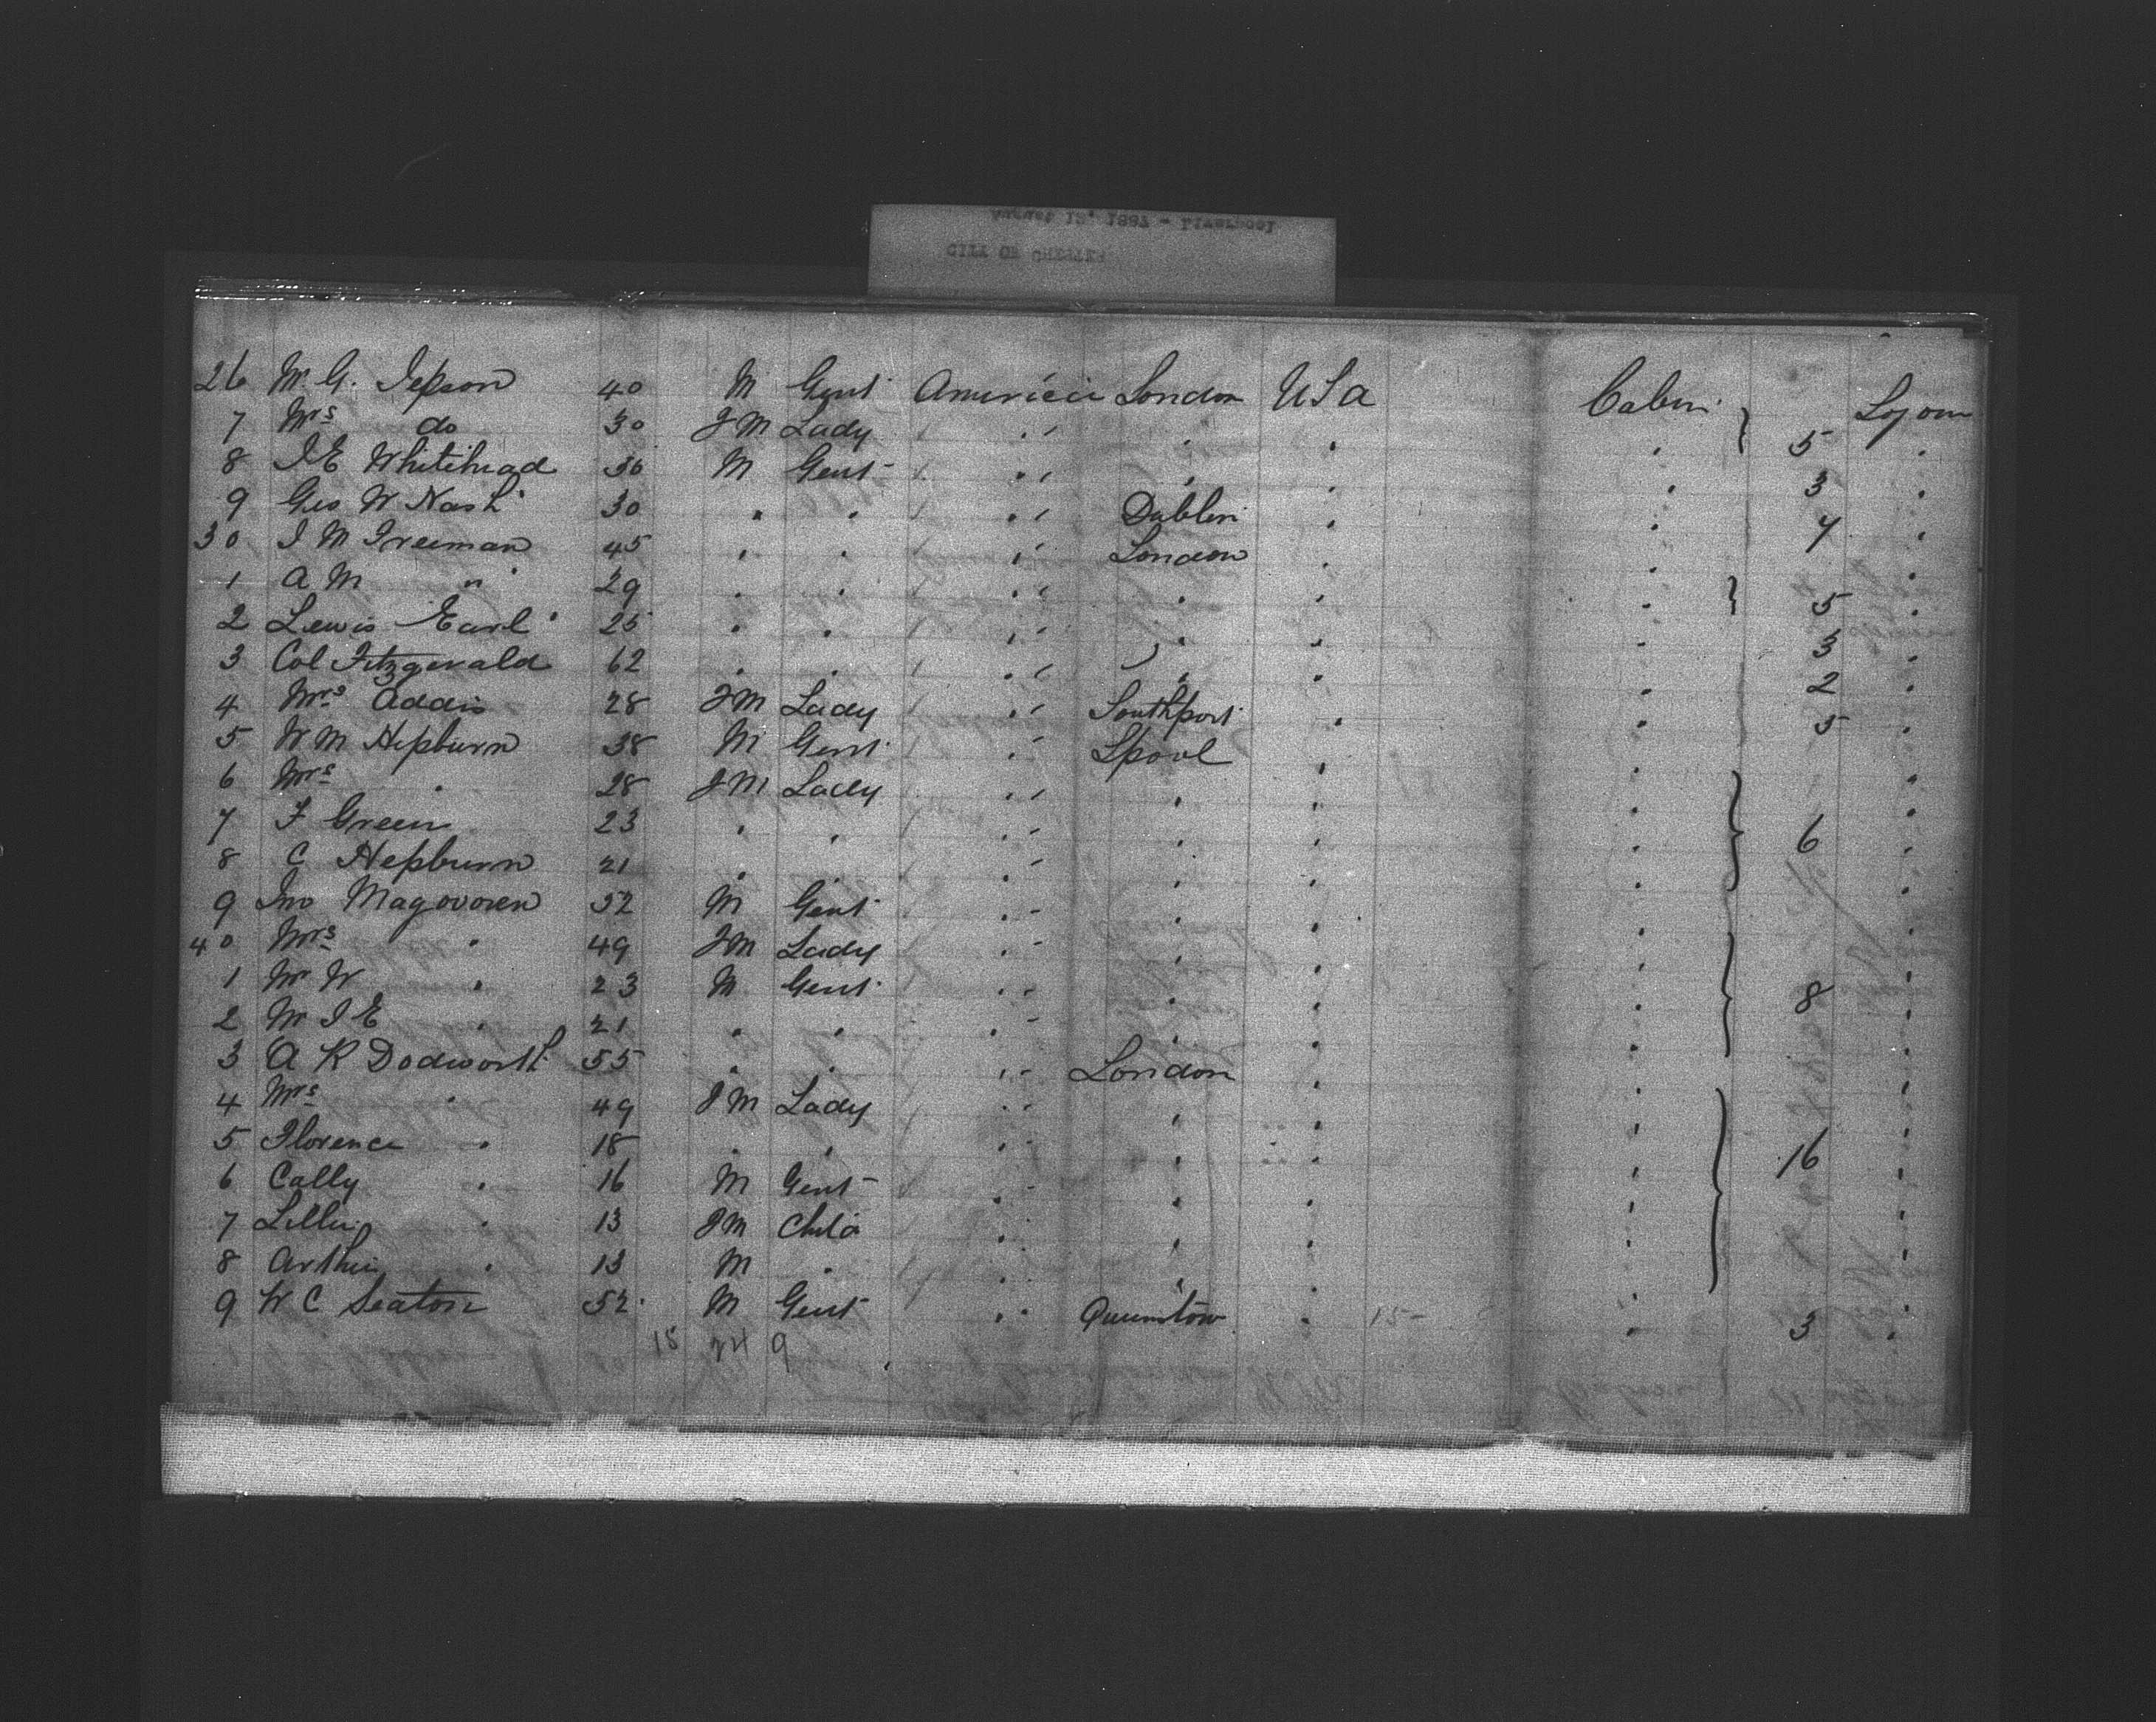 August 13, 1887 - Liverpool
CITY OF CHESTER
26 Mr. G. Jepson 40 M Gent America London USA Cabin Sojourn
7 Mrs do 30 FM Lady " " " " 5 "
8 J E Whitehead 36 M Gent " " " " 3 "
9 Geo W Nash 30 " " " Dublin " " 7 "
30 J M Freeman 45 " " " London " " "
1 A M " 29 " " " " " " 5 "
2 Lewis Earl 25 " " " " " " 3 "
3 Col Fitzgerald 62 " " " " " " 2 "
4 Mrs Addis 28 FM Lady " Southport " " 5 "
5 W M Hepburn 38 M Gent " Lpool " " "
6 Mrs " 28 FM Lady " " " " "
7 F Green 23 " " " " " " 6 "
8 C Hepburn 21 " " " " " " "
9 Jno Magovoren 52 M Gent " " " " "
40 Mrs " 49 FM Lady " " " " "
1 Mr W " 23 M Gent " " " " 8 "
2 Mr J E " 21 " " " " " " "
3 A K Dodworth 55 " " " London " " "
4 Mrs " 49 FM Lady " " " " "
5 Florence " 18 " " " " " " 16 "
6 Cally " 16 M Gent " " " " "
7 Lillie " 13 FM Child " " " " "
8 Arthur " 13 M " " " " " "
9 W C Seaton 52 M Gent " Queenstow " 15 - " 3 "
15 24 9